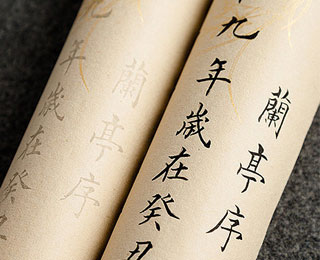 蘭亭序
九年歲在癸丑
蘭亭序
年歲在癸丑